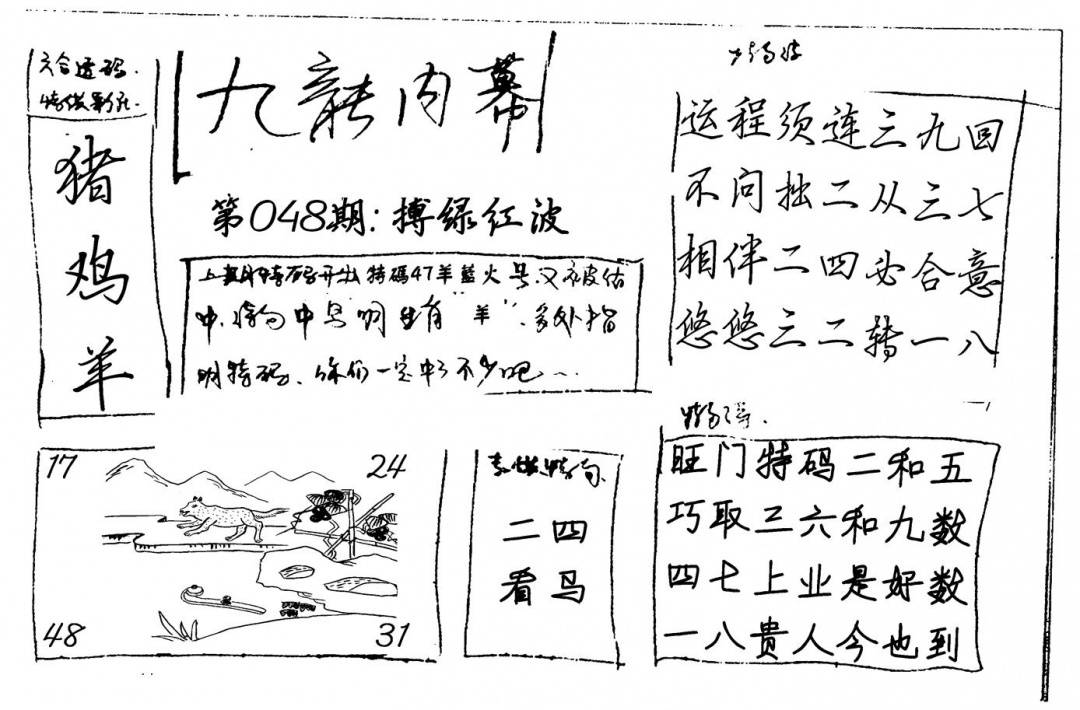 六合透码.
猪
鸡
羊
九龍内幕
第048期:搏绿红波
上期特码开出特碼47羊藍火号又被估
中,特句中马明生肖“羊”,多处指
明特码、你们一定中了不少吧
运程须连三九回
不问拙二从三七
相伴二四必合意
悠悠三二转一八
17
24
48
31
二四
看鸟
旺门特码二和五
巧取三六和九数
四七上业是好数
一八贵人今也到